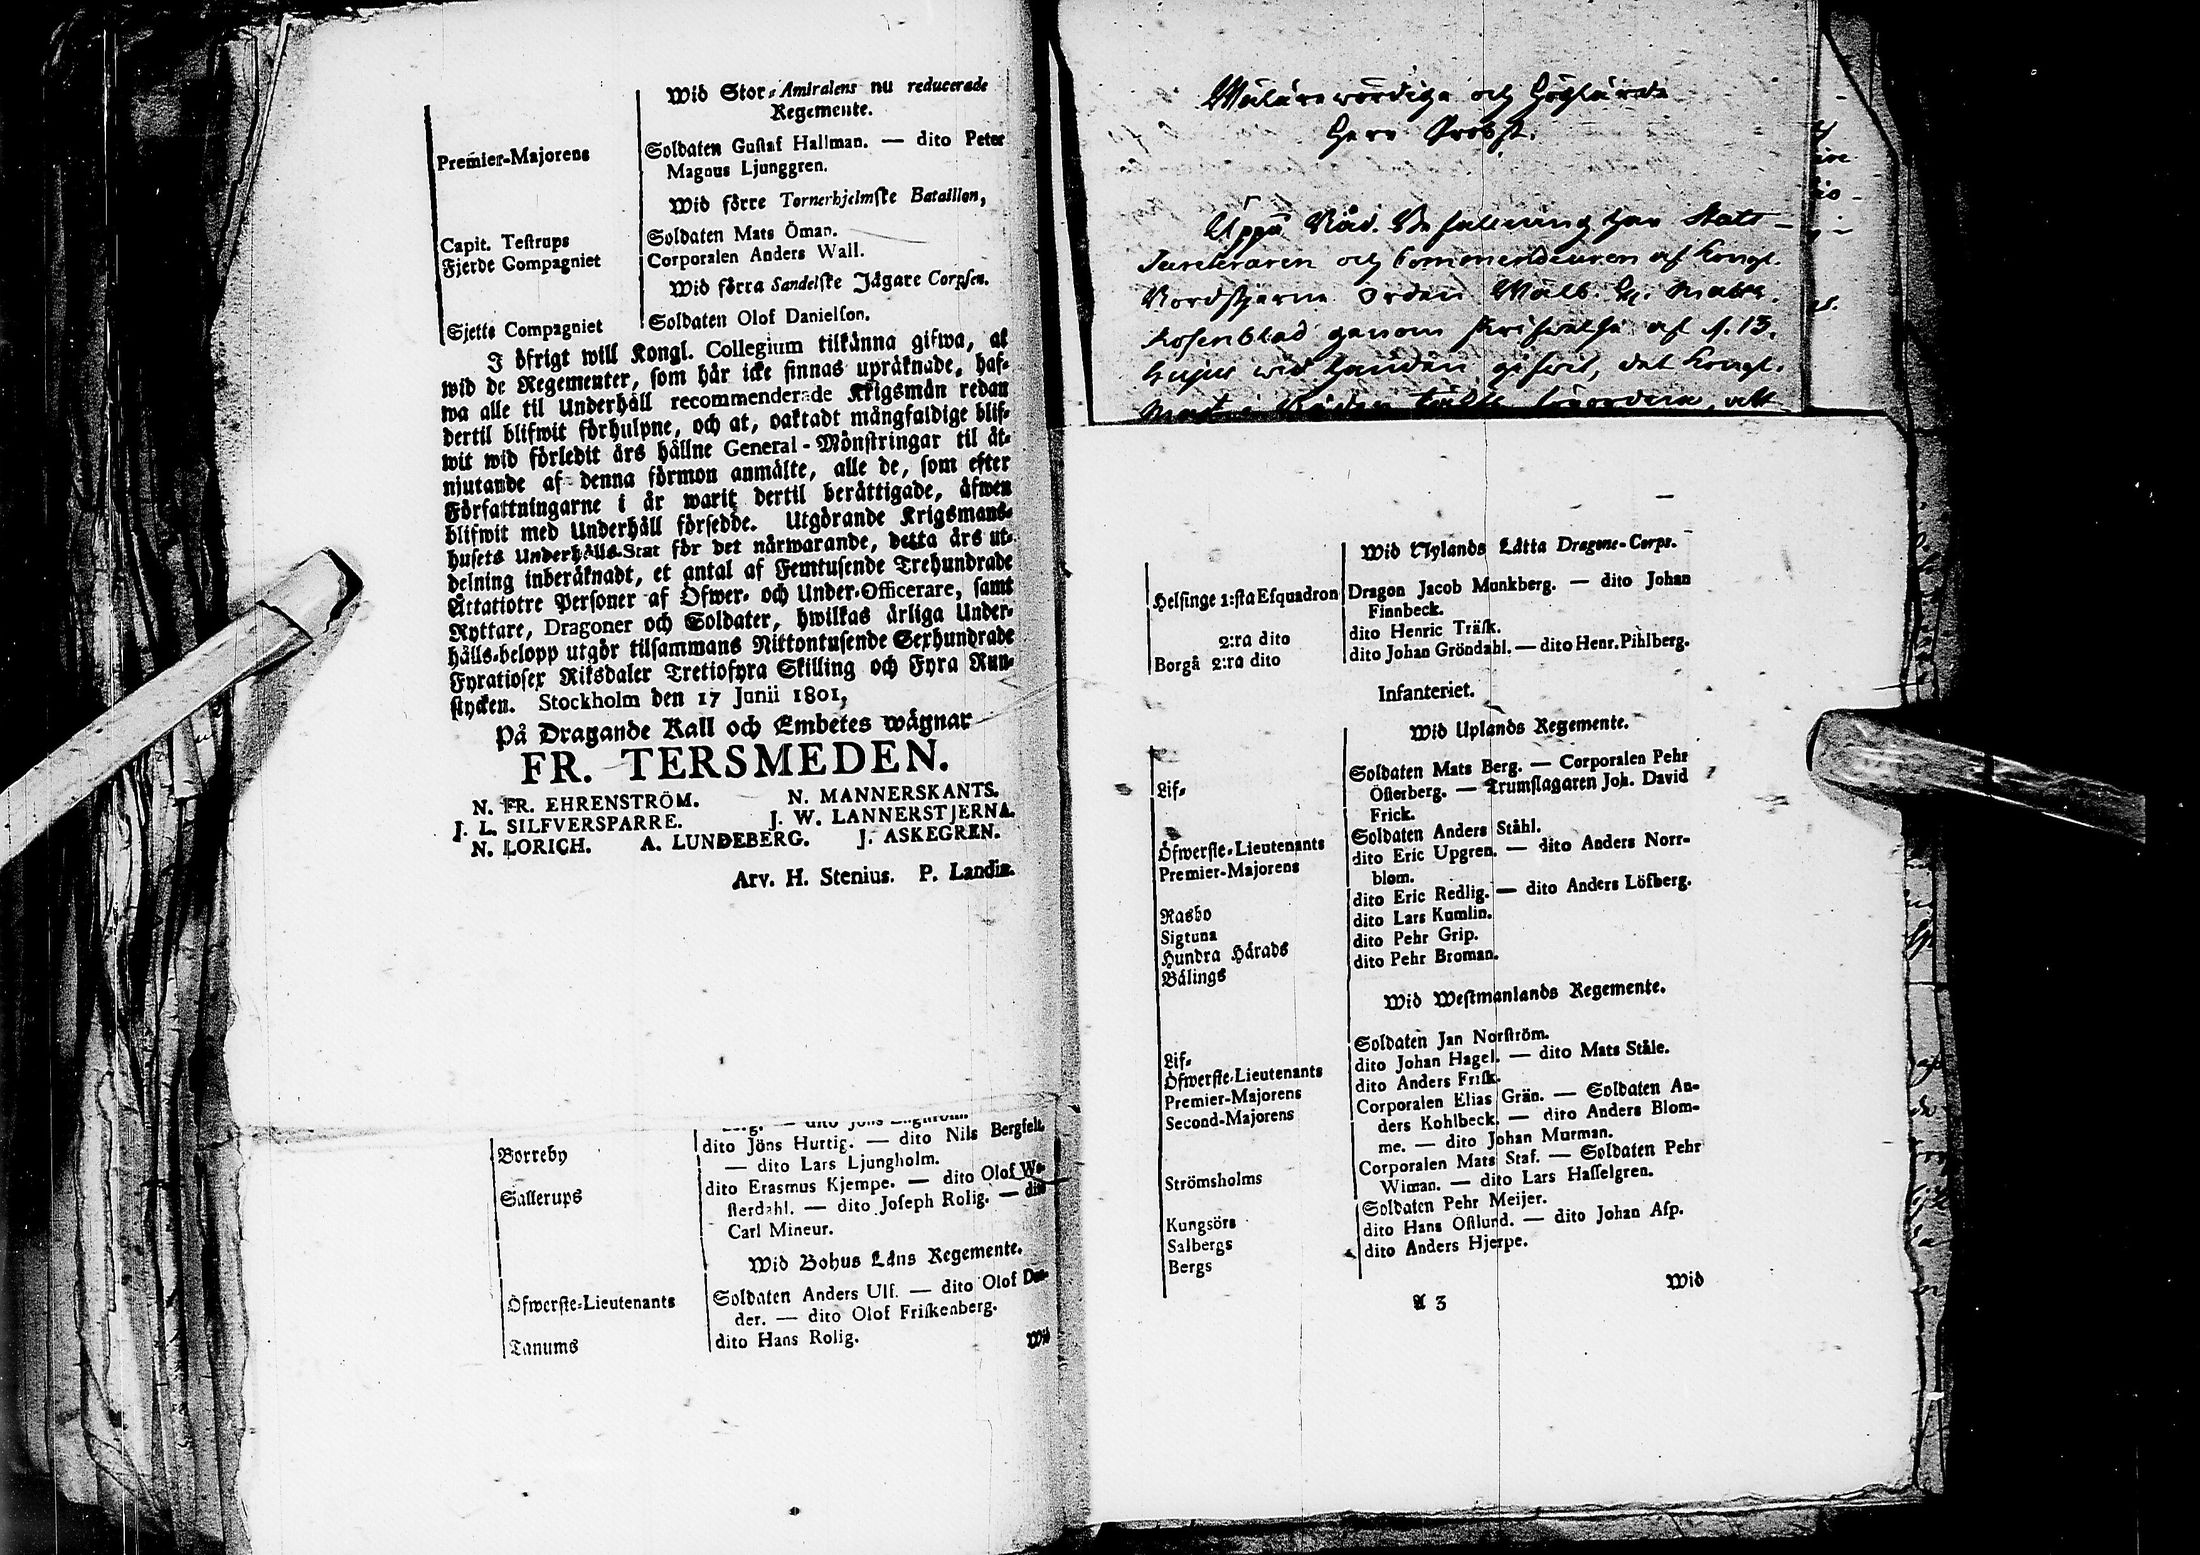 Wid Stor-Amiralens nu reducerade
Regemente.
Premier-Majorens
Soldaten Gustaf Hallman. — dito Peter
Magnus Ljunggren.
Wid förre Tornerhjelmske Bataillon,
Capit. Testrups
Soldaten Mats Öman.
Fjerde Compagniet
Corporalen Anders Wall.
Wid förra Sandelske Jägare Corpsen.
Sjette Compagniet
Soldaten Olof Danielson.
I öfrigt will Kongl. Collegium tilkänna gifwa, at
wid de Regementer, som här icke finnas upräknade, haf-
wa alle til Underhåll recommenderade Krigsmän redan
dertil blifwit förhulpne, och at, oaktadt mångfaldige blif-
wit wid förledit års hållne General-Mönstringar til åt-
njutande af denna förmon anmälte, alle de, som efter
Författningarne i år warit dertil berättigade, äfwen
blifwit med Underhåll försedde. Utgörande Krigsmans-
husets Underhålls-Stat för det närwarande, detta års ut-
delning inberäknadt, et antal af Femtusende Trehundrade
Åttatiotre Personer af Öfwer- och Under-Officerare, samt
Ryttare, Dragoner och Soldater, hwilkas årliga Under-
hålls-belopp utgör tilsammans Nittontusende Sexhundrade
Fyratiosex Riksdaler Tretiofyra Skilling och Fyra Run-
stycken. Stockholm den 17 Junii 1801,
På Dragande Kall och Embetes wägnar
FR. TERSMEDEN.
N. FR. EHRENSTRÖM. N. MANNERSKANTS.
J. L. SILFVERSPARRE. J. W. LANNERSTJERNA.
N. LORICH. A. LUNDEBERG. J. ASKEGREN.
Arv. H. Stenius. P. Landin.
Borreby
dito Jöns Hurtig. — dito Nils Bergfelt.
— dito Lars Ljungholm.
Sallerups
dito Erasmus Kjempe. — dito Olof We-
sterdahl. — dito Joseph Rolig. — dito
Carl Mineur.
Wid Bohus Läns Regemente.
Öfwerste-Lieutenants
Soldaten Anders Ulf. — dito Olof
der. — dito Olof Friskenberg.
Tanums
dito Hans Rolig.
Wid
Wälärewördige och Höglärde
Herr Probst.
Uppå Nåd. Befallning har Stats-
Secreteraren och Commendeuren af Kongl.
Nordstjerne Orden Wälb. Hr. Mathe.
Rosenblad genom skrifwelse af d. 13.
hujus wid handen gifwit, det Kongl.
Wid Nylands Lätta Dragone-Corps.
Helsinge 1:sta Esquadron
Dragon Jacob Munkberg. — dito Johan
Finnbeck.
2:ra dito
dito Henric Träsk.
Borgå 2:ra dito
dito Johan Gröndahl. — dito Henr. Pihlberg.
Infanteriet.
Wid Uplands Regemente.
Lif-
Soldaten Mats Berg. — Corporalen Pehr
Österberg. — Trumslagaren Joh. David
Frick.
Öfwerste-Lieutenants
Soldaten Anders Ståhl.
Premier-Majorens
dito Eric Upgren. — dito Anders Norr-
blom.
Rasbo
dito Eric Redlig. — dito Anders Löfberg.
Sigtuna
dito Lars Kumlin.
Hundra Härads
dito Pehr Grip.
Bälings
dito Pehr Broman.
Wid Westmanlands Regemente.
Lif-
Soldaten Jan Norström.
Öfwerste-Lieutenants
dito Johan Hagel. — dito Mats Ståle.
Premier-Majorens
dito Anders Frisk.
Second-Majorens
Corporalen Elias Grän. — Soldaten An-
ders Kohlbeck. — dito Anders Blom-
me. — dito Johan Murman.
Strömsholms
Corporalen Mats Staf. — Soldaten Pehr
Wiman. — dito Lars Hasselgren.
Kungsörs
Soldaten Pehr Meijer.
Salbergs
dito Hans Östlund. — dito Johan Asp.
Bergs
dito Anders Hjerpe.
A 3
Wid